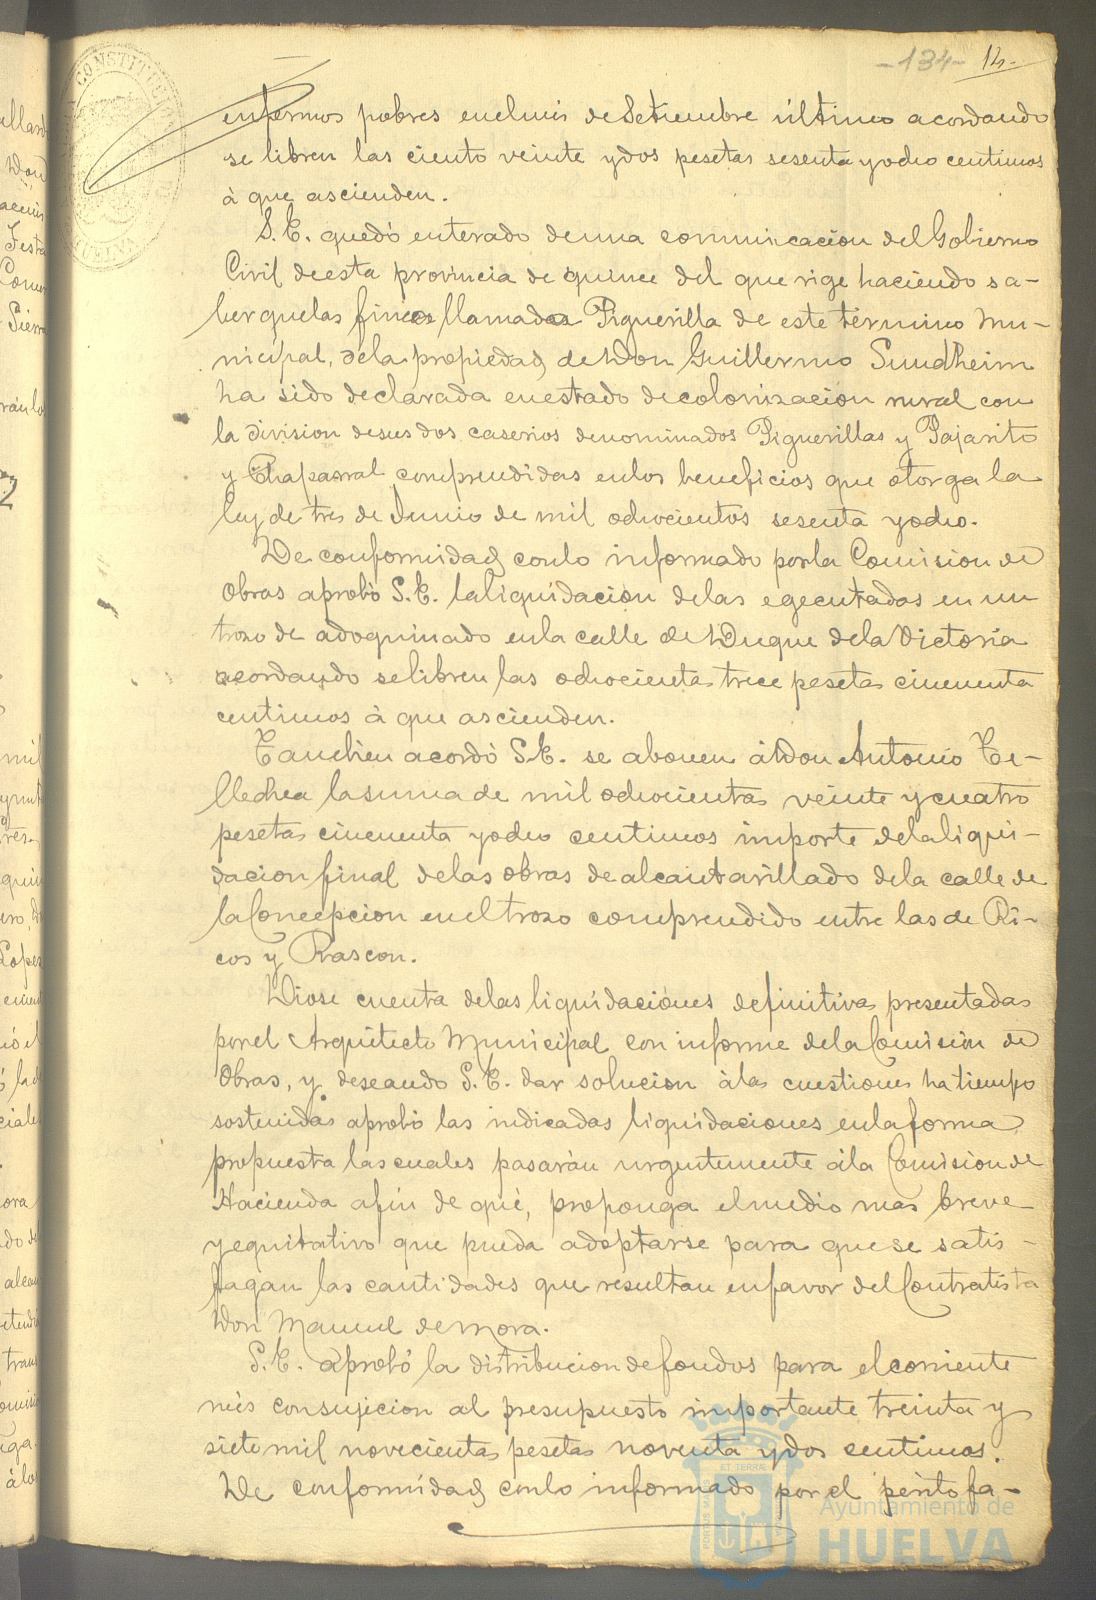 -134- 14-
enfermos pobres en el mes de Setiembre último acordando
se libren las ciento veinte y dos pesetas sesenta y ocho centimos
à que ascienden.
S.E. quedó enterado de una comunicación del Gobierno
Civil de esta provincia de quince del que rige haciendo sa-
ber que las fincas llamadas Piguerilla de este término mu-
nicipal, de la propiedad de Don Guillermo Sundheim
ha sido declarada en estado de colonización rural con
la division de sus dos caserios denominados Piguerillas y Pajarito
y Chaparral comprendidas en los beneficios que otorga la
ley de tres de Junio de mil ochocientos sesenta y ocho.
De conformidad con lo informado por la Comision de
Obras aprobó S.E. la liquidación de las egecutadas en un
trozo de adoquinado en la calle de Duque de la Victoria
acordando se libren las ochocienta trece pesetas cincuenta
centimos à que ascienden.
Tambien acordó S.E. se abonen à Don Antonio Te-
llechea la suma de mil ochocientas veinte y cuatro
pesetas cincuenta y ocho centimos importe de la liqui-
dacion final de las obras de alcantarillado de la calle de
la Concepcion en el trozo comprendido entre las de Ri-
cos y Rascon.
Diose cuenta de las liquidaciónes definitivas presentadas
por el Arquitecto Municipal con informe de la Comisión de
Obras, y deseando S.E. dar solucion à las cuestiones ha tiempo
sostenidas aprobó las indicadas liquidaciones en la forma
propuesta las cuales pasarán urgentemente à la Comision de
Hacienda afin de que, proponga el medio mas breve
y equitativo que pueda adoptarse para que se satis-
fagan las cantidades que resultan en favor del Contratista
Don Manuel de Mora.
S.E. aprobó la distribucion de fondos para el corriente
més con sujecion al presupuesto importante treinta y
siete mil novecientas pesetas noventa y dos centimos.
De conformidad con lo informado por el perito fa-
Ayuntamiento de
HUELVA